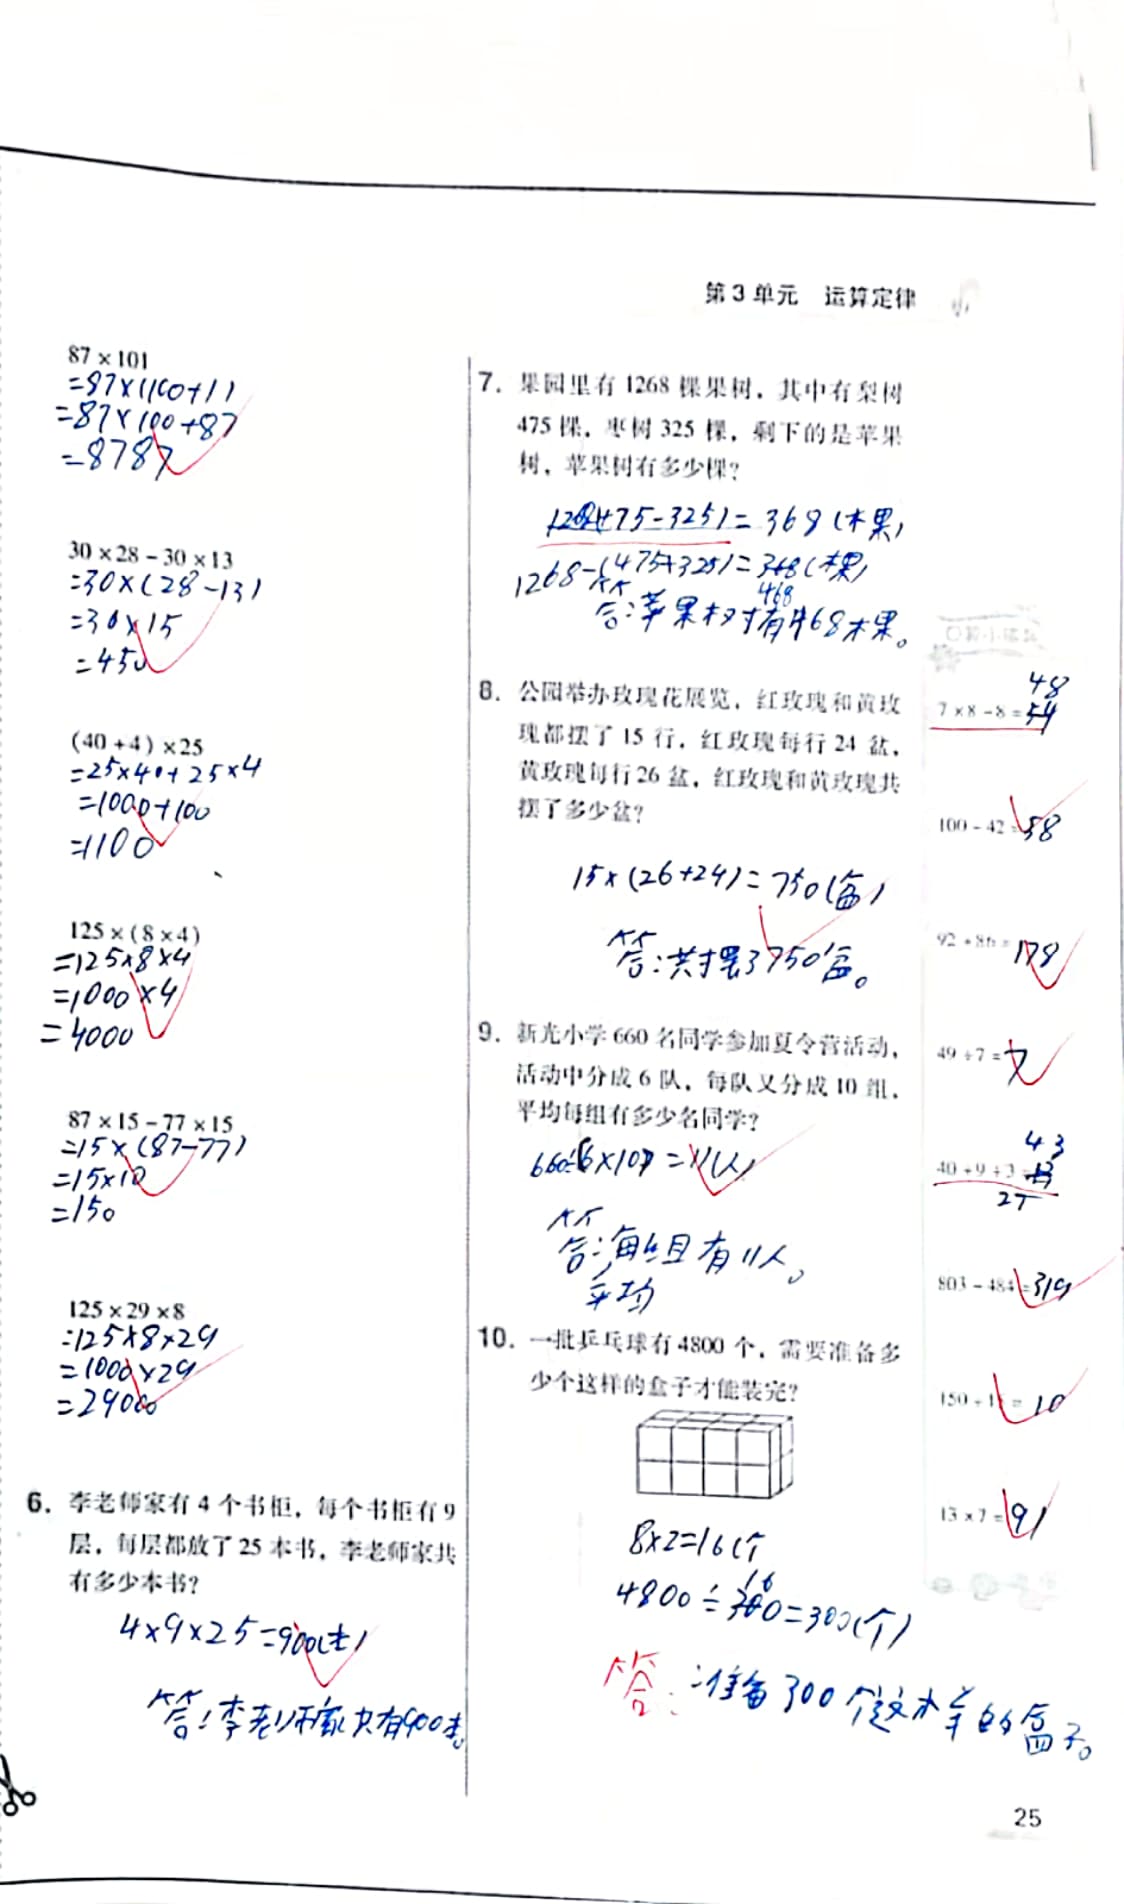 第3单元 运算定律
87×101
=87×(100+1)
=87×100+87
=8787
30×28-30×13
=30×(28-13)
=30×15
=450
(40+4)×25
=25×40+25×4
=1000+100
=1100
125×(8×4)
=125×8×4
=1000×4
=4000
87×15-77×15
=15×(87-77)
=15×10
=150
125×29×8
=125×8×29
=1000×29
=29000
6. 李老师家有4个书柜，每个书柜有9
层，每层都放了25本书，李老师家共
有多少本书？
4×9×25=900(本)
答：李老师家共有900本。
7. 果园里有1268棵果树，其中有梨树
475棵，枣树325棵，剩下的是苹果
树，苹果树有多少棵？
475-325)=368(棵)
1268-(475+325)=
468
(棵)
答：苹果树有468棵。
8. 公园举办玫瑰花展览，红玫瑰和黄玫
瑰都摆了15行，红玫瑰每行24盆，
黄玫瑰每行26盆，红玫瑰和黄玫瑰共
摆了多少盆？
15×(26+24)=750(盆)
答：共摆了750盆。
9. 新光小学660名同学参加夏令营活动，
活动中分成6队，每队又分成10组，
平均每组有多少名同学？
660÷(6×10)=11(人)
答：每组有11人。
平均
10. 一批乒乓球有4800个，需要准备多
少个这样的盒子才能装完？
8×2=16(个
16
4800÷=300(个)
答：准备300个这样的盒子。
48
7×8-8=54
100-42=58
92+86=178
49÷7=7
43
40+9÷3=
27
803-484=319
150÷15=10
13×7=91
25